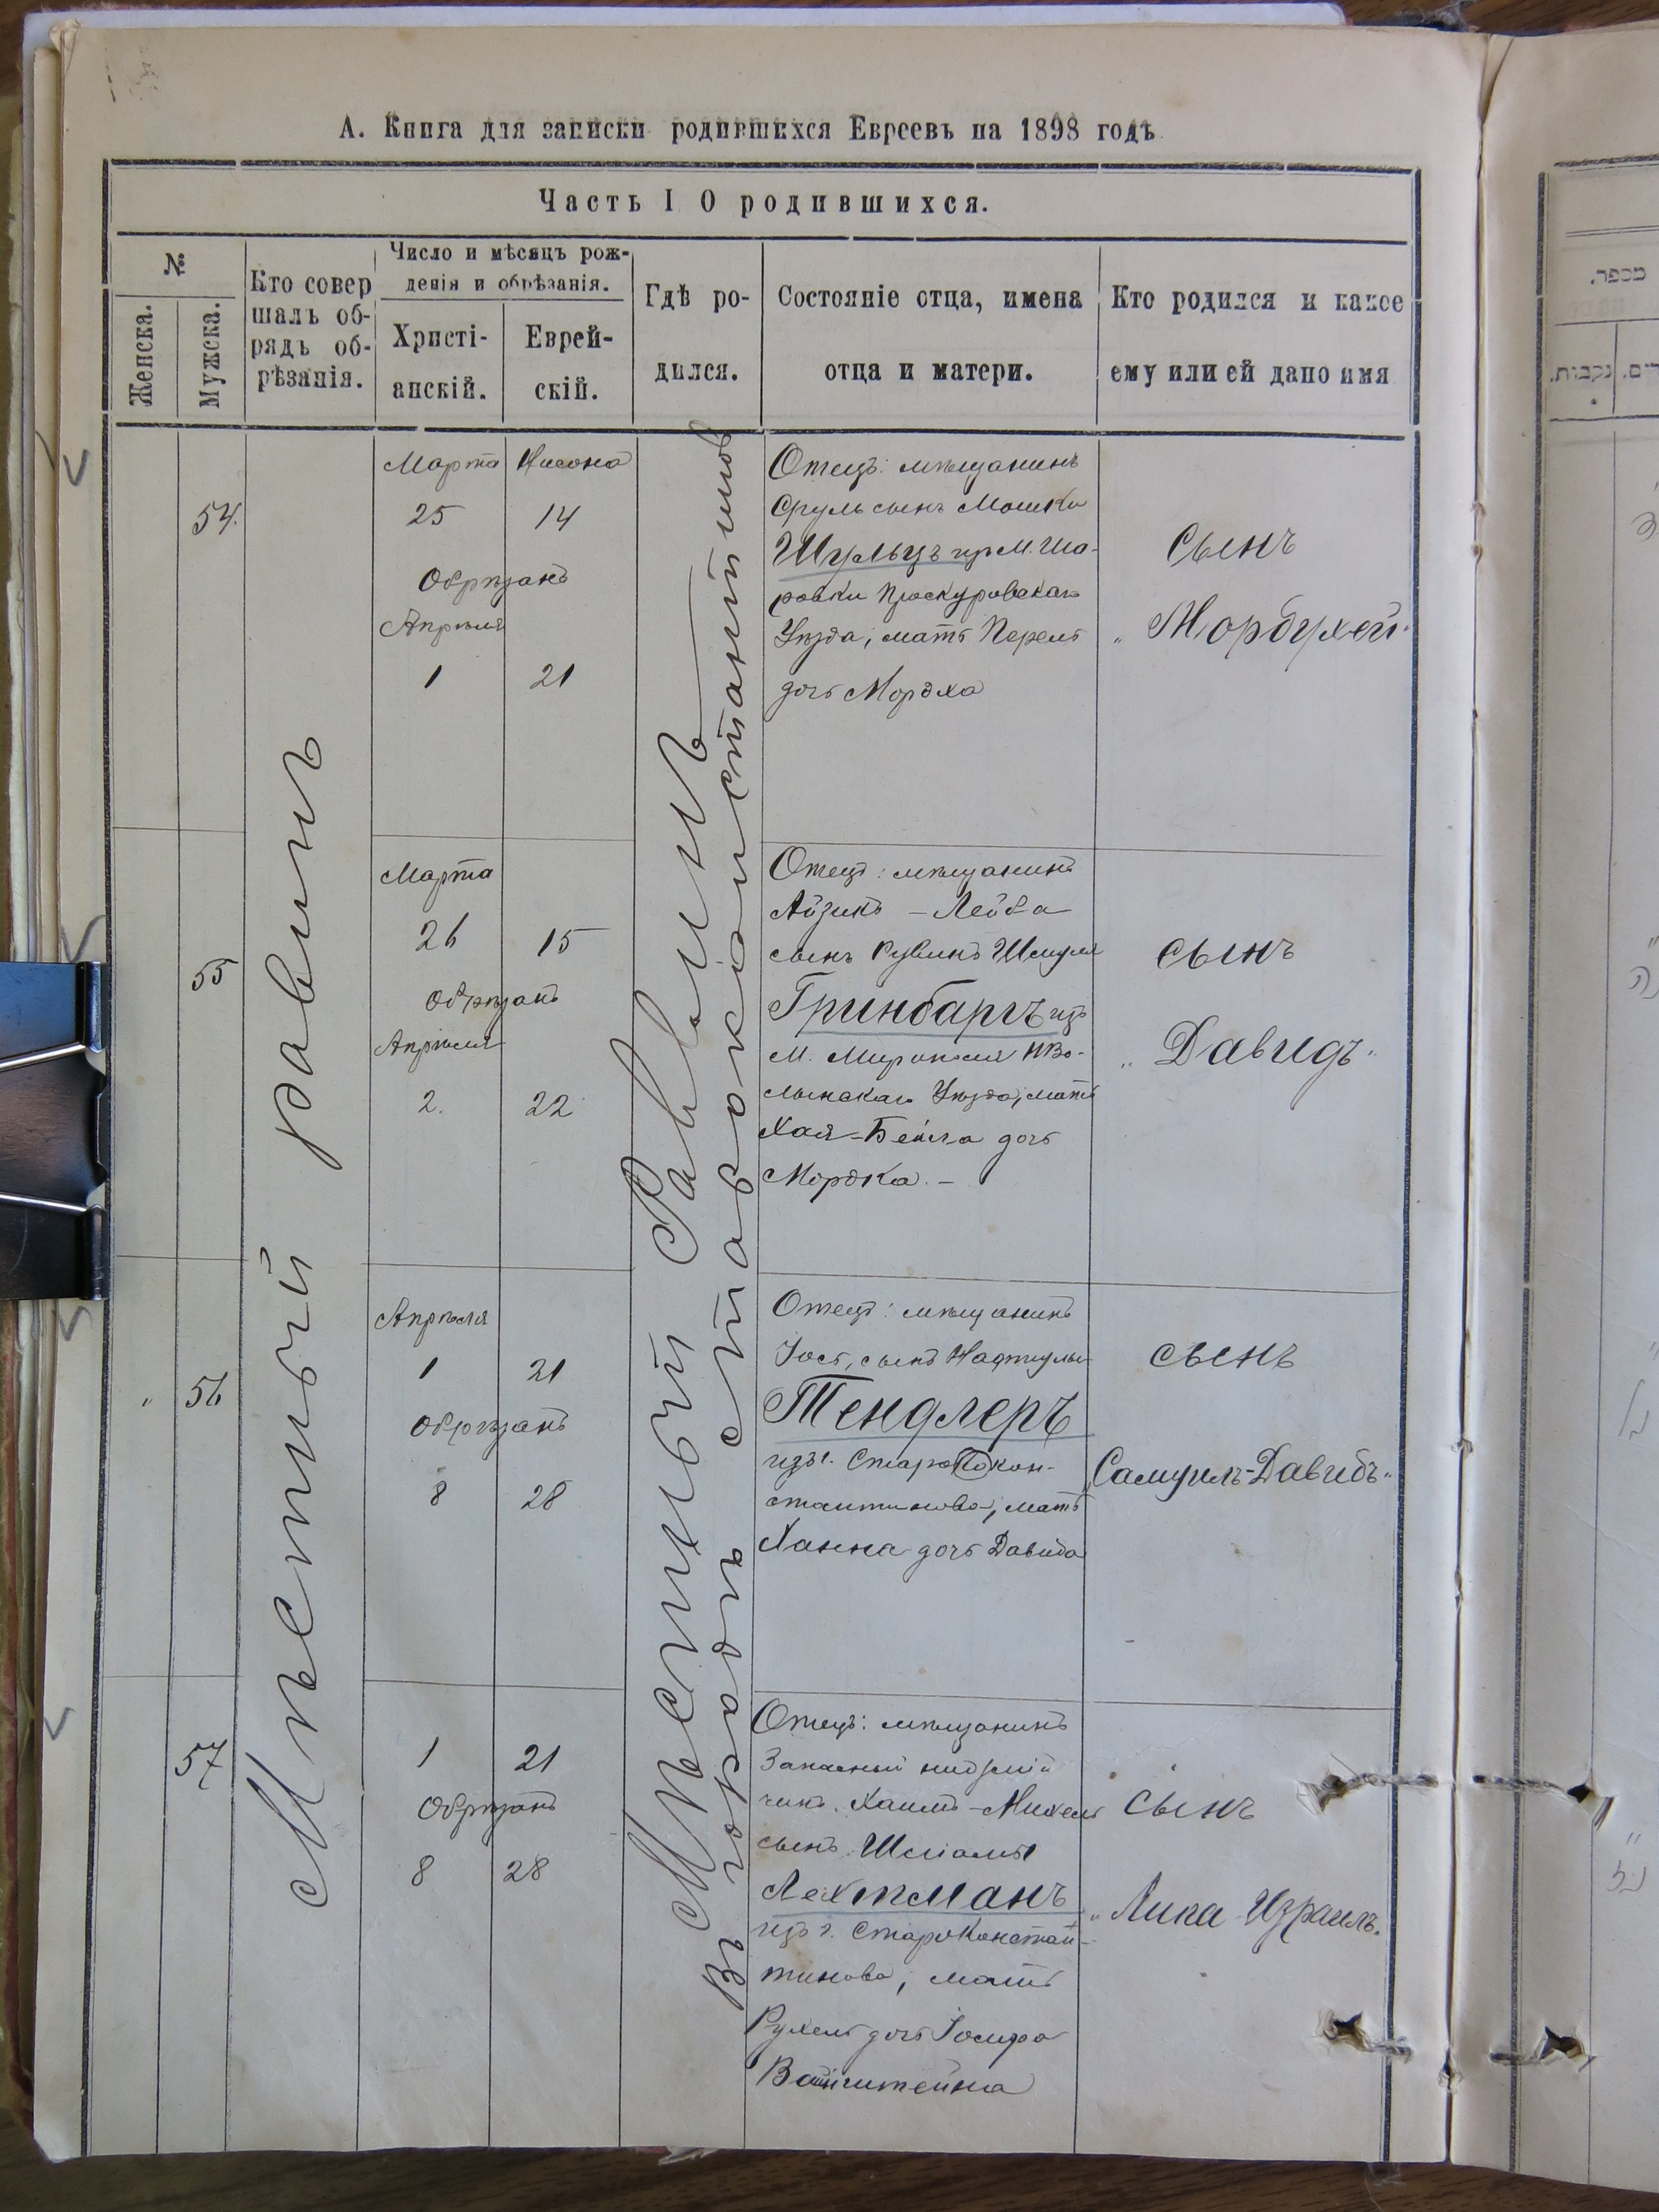 А. Книга для записки родившихся Евреевъ на 1898 годъ
Часть I О родившихся.
№
Женска.
Мужска.
Кто совер
шалъ об-
рядъ об-
рѣзанія.
Число и мѣсяцъ рож-
денія и обрѣзанія.
Христі-
анскій.
Еврей-
скій.
Гдѣ ро-
дился.
Состояніе отца, имена
отца и матери.
Кто родился и какое
ему или ей дано имя
Мѣстный равинъ
Мѣстный Равинъ
Въ городѣ Староконстантинов
54.
Марта Нисона
25 14
Обрѣзанъ
Апрѣля
1 21
Отецъ: мѣщанинъ
Сруль сынъ Мошки
Шульцъ изъ М. Ша-
ровки Проскуровскаго
Уѣзда, мать Перель
дочь Мордха
Сынъ
„Мордухей“
55
Марта
26 15
Обрѣзанъ
Апрѣля
2. 22
Отецъ: мѣщанинъ
Айзикъ - Лейба
сынъ Рувинъ Шмуля
Гринбаргъ изъ
М. Мирополя НВо-
лынскаго Уѣзда, мать
Хая-Бейла дочь
Мордка. -
сынъ
„Давидъ“
„ 56
Апрѣля
1 21
Обрѣзанъ
8 28
Отецъ: мѣщанинъ
Іось, сынъ Нафтулы
Тендлеръ
изъ г. Старо кон-
стантинова, мать
Ханна дочь Давида
сынъ
„Самуилъ-Давидъ“
57
1 21
Обрѣзанъ
8 28
Отецъ: мѣщанинъ
Запасный
Хаимъ-Михель
сынъ Шліомы
Лехтманъ
изъ г. СтароКонстан-
тинова, мать
Рухель дочь Іосифа
Вайнштейна
сынъ
„Липа Израиль.
מספר.
נקבות.